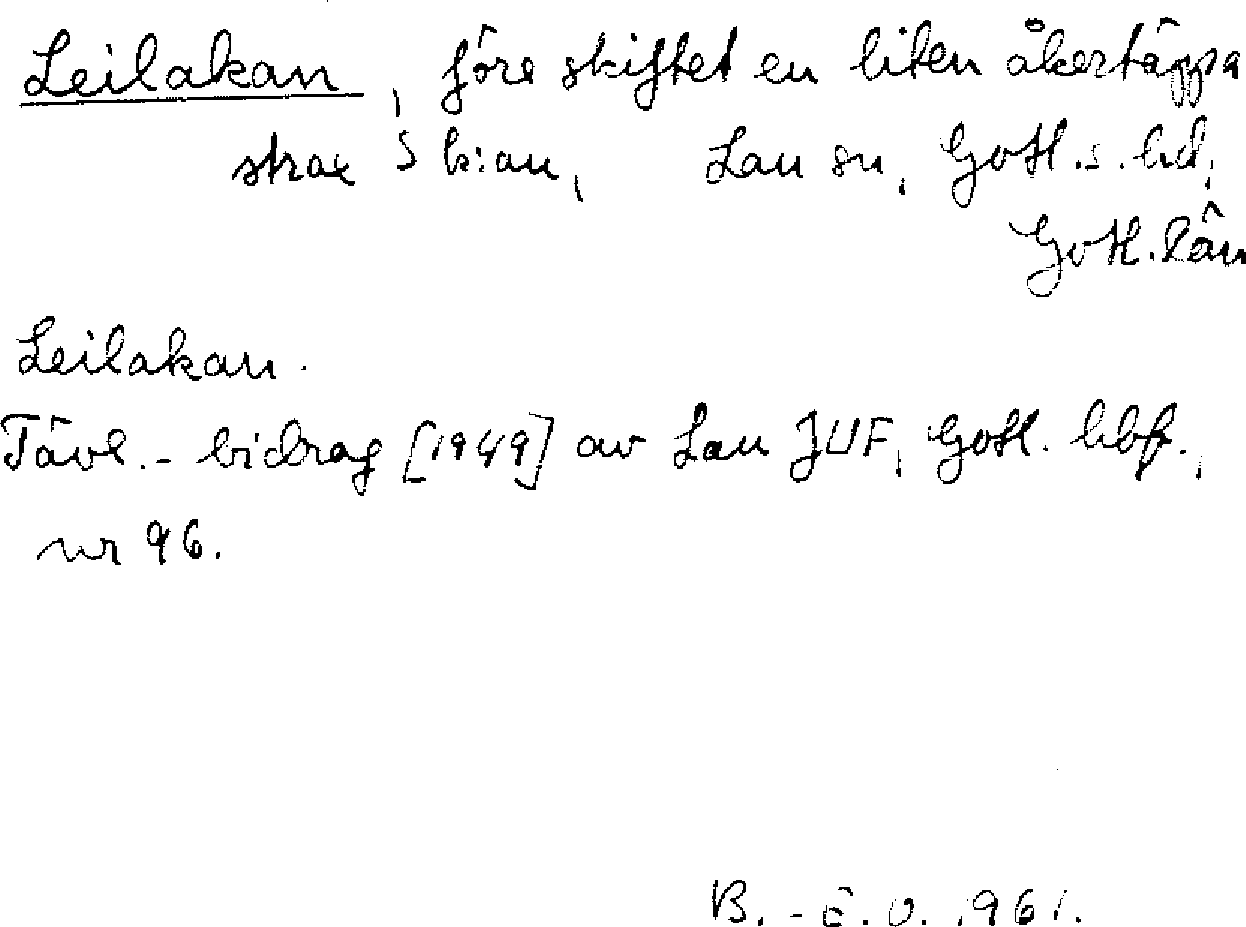 Leilakan, före skiftet en liten åkertäppa
strax S k:an, Lau sn, Gotl. s. hd,
Gotl. län
Leilakan.
Tävl.- bidrag [1949] av Lau JUF, Gotl. hbf.,
nr 96.
B. - E. O. 1961.